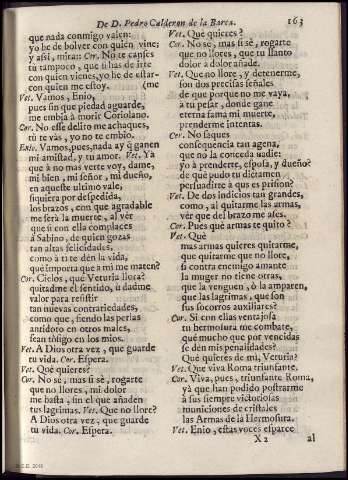 De D. Pedro Calderon de la Barca.
163
que nada conmigo valen:
yo he de bolver con quien vine;
y assi, mira: Cor. No te canses
tu tampoco, que si has de irte
con quien vienes, yo he de estar-
con quien me estoy. (me
Vet. Vamos, Enio,
pues sin que piedad aguarde,
me embia à morir Coriolano.
Cor. No esse delito me achaques,
tù te vàs, yo no te embio.
Enio. Vamos, pues, nada ay q̃ ganen
mi amistad, y tu amor. Vet. Ya
que à no mas verte voy, dame,
mi bien, mi señor, mi dueño,
en aqueste ultimo vale,
siquiera por despedida,
los brazos, con que agradable
me serà la muerte, al vèr
que si con ella complaces
à Sabino, de quien gozas
tan altas felicidades,
como à tì te dèn la vida,
què importa que à mi me maten?
Cor. Cielos, què Veturia llora?
quitadme el sentido, ù dadme
valor para resistir
tan nuevas contrariedades,
como que, siendo las perlas
antidoto en otros males,
sean tosigo en los mios.
Vet. A Dios otra vez, que guarde
tu vida. Cor. Espera.
Vet. Què quieres?
Cor. No sè, mas sì sè, rogarte
que no llores, mi dolor
me basta, sin el que añaden
tus lagrimas. Vet. Que no llore?
A Dios otra vez, que guarde
tu vida. Cor. Espera.
Vet. Què quieres?
Cor. No sè, mas sì sè, rogarte
que no llores, que tu llanto
dolor à dolor añade.
Vet. Que no llore, y detenerme,
son dos precisas señales
de que porque no me vaya,
à tu pesar, donde gane
eterna fama mi muerte,
prenderme intentas.
Cor. No saques
consequencia tan agena,
que no la conceda nadie:
yo à prenderte, esposa, y dueño?
de què pudo tu dictamen
persuadirte à que es prision?
Vet. De dos indicios tan grandes,
como, al quitarme las armas,
vèr que del brazo me ases.
Cor. Pues què armas te quito?
Vet. Què
mas armas quieres quitarme,
que quitarme que no llore,
si contra enemigo amante
la muger no tiene otras,
que la venguen, ò la amparen,
que las lagrimas, que son
sus socorros auxiliares?
Cor. Si con ellas ventajosa
tu hermosura me combate,
què mucho que por vencidas
se dèn mis penalidades?
Què quieres de mì, Veturia?
Vet. Que viva Roma triunfante.
Cor. Viva, pues, triunfante Roma,
yà que han podido postrarme
à sus siempre victoriosas
municiones de cristales
las Armas de la Hermosura.
Vet. Enio, estas voces esparce
X 2
al